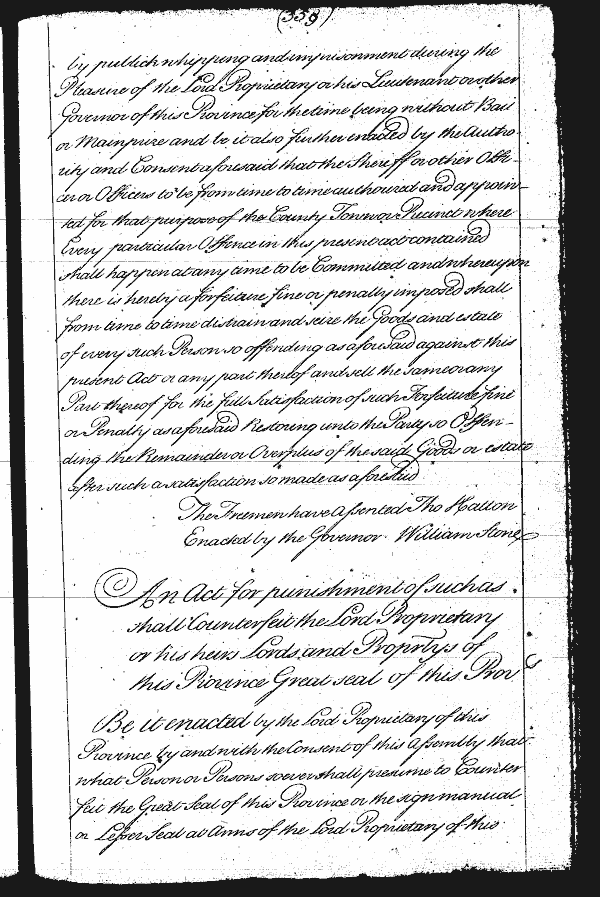 (359)
by publick whipping and imprisonment during the
Pleasure of the Lord Proprietary or his Lieutenant or other
Governor of this Province for the time being without Bail
or Mainprize and be it also further enacted by the Autho-
rity and Consent aforesaid that the Sheriff or other Offi-
cer or Officers to be from time to time authorized and appoin-
ted for that purpose of the County Town or Precinct where
Every particular Offence in this present act contained
shall happen at any time to be Committed and whereupon
there is hereby a forfeiture fine or penalty imposed shall
from time to time distrain and seize the Goods and estate
of every such Person so offending as aforesaid against this
present Act or any part thereof and sell the same or any
Part thereof for the full Satisfaction of such Forfeiture fine
or Penalty as aforesaid Restoring unto the Party so Offen-
ding the Remainder or Overplus of the said Goods or estate
after such a satisfaction so made as aforesaid
The Freemen have assented Tho Hatton
Enacted by the Governor William Stone
An Act for punishment of such as
shall Counterfeit the Lord Proprietary
or his heirs Lords and Proprtys of
this Province Great seal of this Provce
Be it enacted by the Lord Proprietary of this
Province by and with the Consent of this Assembly that
what Person or Persons soever shall presume to Counter
feit the Great Seal of this Province or the sign manual
or Lesser Seal at Arms of the Lord Proprietary of this